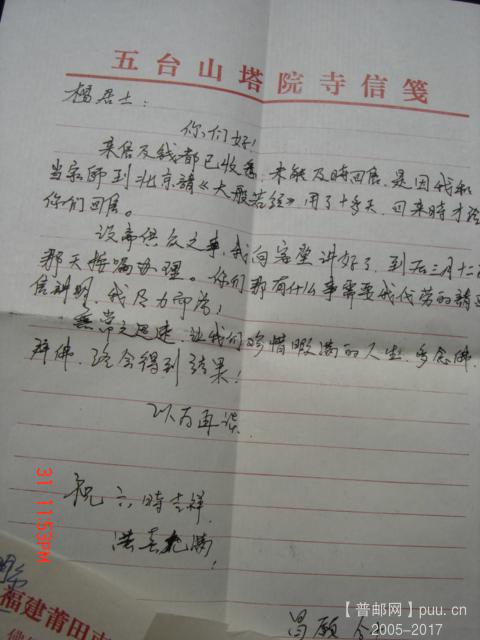 五台山塔院寺信笺
居士：
你们好！
来信及钱都已收悉，未能及时回信，是因我和
当家师到北京請《大般若经》用了十多天，回来時才给
你们回信。
设斋供众之事，我向客堂讲好了，到在三月十二
那天按嘱办理。你们那有什么事需要我代劳的請
信讲明，我尽力而为！
無常之迅速，让我们珍惜暇满的人生，多念佛，
拜佛，终会得到结果！
以后再谈
祝六時吉祥
法喜充满！
昌
福建莆田
31 11:53PM
【普邮网】puu.cn
2005-2017